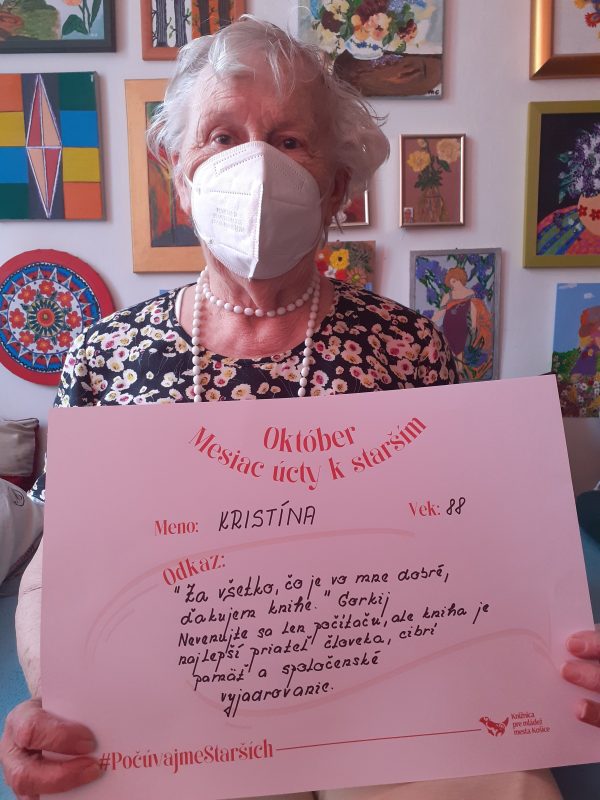 Október
Mesiac úcty k starším
Meno: KRISTÍNA
Vek: 88
Odkaz:
"Za všetko, čo je vo mne dobré,
ďakujem knihe." Gorkij
Nevenujte sa len počítaču, ale kniha je
najlepší priateľ človeka, cibrí
pamäť a spoločenské
vyjadrovanie.
#PočúvajmeStarších
Knižnica
pre mládež
mesta Košice